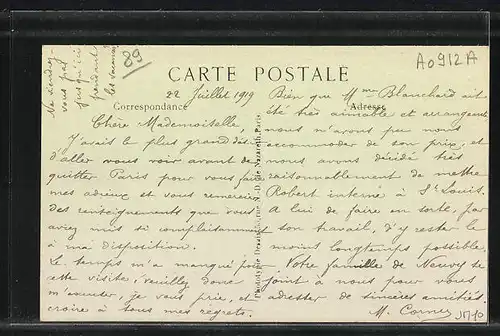 Ao912A
89
Ne viendrez-
vous pas
jusqu'ici
pendant
les vacances
CARTE POSTALE
Correspondance
Adresse
22 Juillet 1919
Chère Mademoiselle,
J'avais le plus grand désir
d'aller vous voir avant de
quitter Paris pour vous faire
mes adieux et vous remercier
des renseignements que vous
aviez mis si complaisamment
à ma disposition.
Le temps m'a manqué pour
cette visite, veuillez donc
m'excuser, je vous prie, et
croire à tous mes regrets.
Bien que Mme Blanchard ait
été très aimable et arrangeante
nous n'avons peu nous
accommoder de son prix, et
nous avons décidé très
raisonnablement de mettre
Robert interne à St Louis.
A lui de faire en sorte, par
son travail, d'y rester le
moins longtemps possible.
Votre famille de Neuvy se
joint à nous pour vous
adresser de sincères amitiés.
M. Cornu